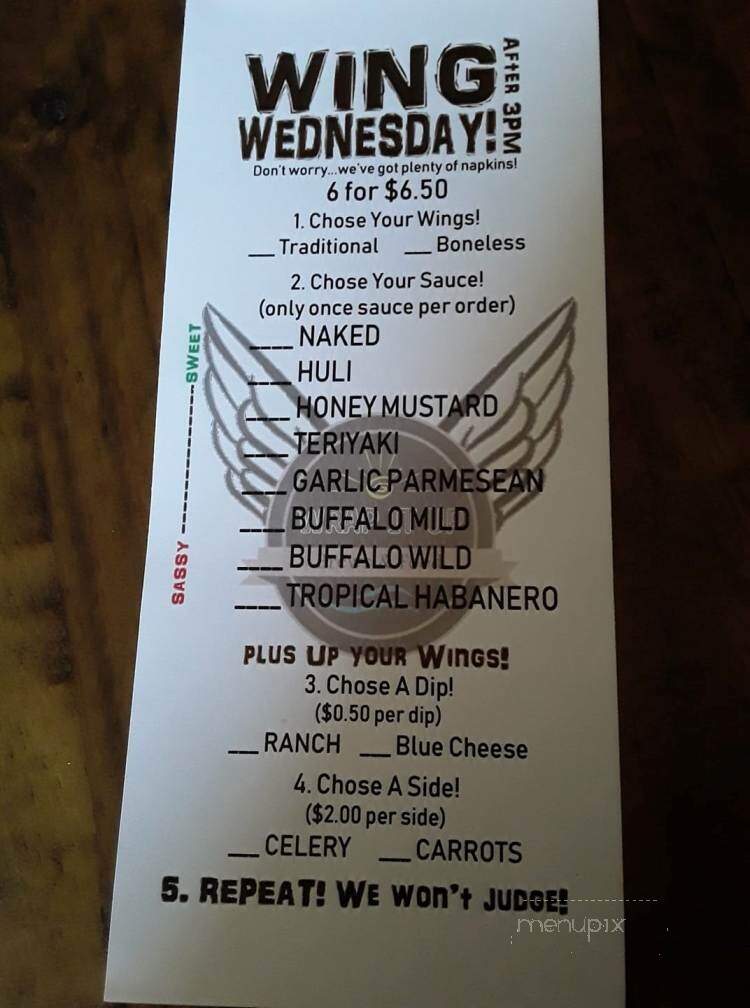 WING
WEDNESDAY!
AFTER 3PM
Don't worry...we've got plenty of napkins!
6 for $6.50
1. Chose Your Wings!
__ Traditional __ Boneless
2. Chose Your Sauce!
(only once sauce per order)
SWEET
SASSY
____ NAKED
____ HULI
____ HONEY MUSTARD
____ TERIYAKI
____ GARLIC PARMESEAN
____ BUFFALO MILD
____ BUFFALO WILD
____ TROPICAL HABANERO
PLUS UP YOUR WINGS!
3. Chose A Dip!
($0.50 per dip)
__ RANCH __ Blue Cheese
4. Chose A Side!
($2.00 per side)
__ CELERY __ CARROTS
5. REPEAT! WE WON'T JUDGE!
menupix